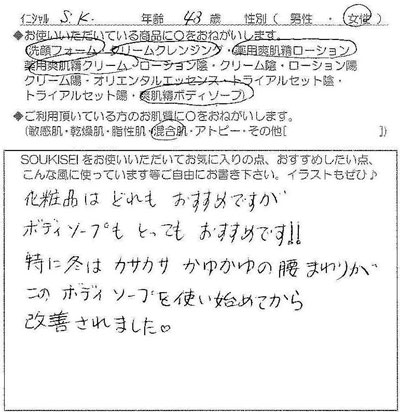 ｲﾆｼｬﾙ S.K. 年齢 43 歳 性別（ 男性 ・ 女性 ）
◆お使いいただいている商品に○をおねがいします。
洗顔フォーム・クリームクレンジング・薬用爽肌精ローション
薬用爽肌精クリーム・ローション陰・クリーム陰・ローション陽
クリーム陽・オリエンタルエッセンス・トライアルセット陰・
トライアルセット陽・爽肌精ボディソープ）
◆ご利用頂いている方のお肌質に○をおねがいします。
（敏感肌・乾燥肌・脂性肌・混合肌・アトピー・その他[ ]）
SOUKISEIをお使いいただいてお気に入りの点、おすすめしたい点、
こんな風に使っています等ご自由にお書き下さい。イラストもぜひ♪
化粧品は どれも おすすめですが
ボディソープも とっても おすすめです!!
特に冬は カサカサ かゆかゆの 腰まわりが
この ボディソープを 使い始めてから
改善されました♡